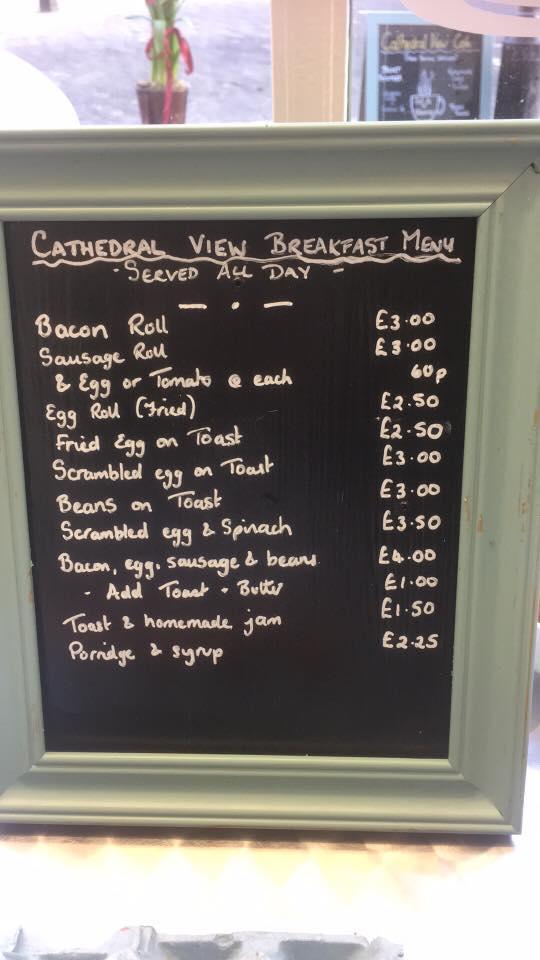 Cathedral View Cafe
CATHEDRAL VIEW BREAKFAST MENU
- SERVED ALL DAY -
Bacon Roll £3.00
Sausage Roll £3.00
& Egg or Tomato @ each 60p
Egg Roll (Fried) £2.50
Fried Egg on Toast £2.50
Scrambled egg on Toast £3.00
Beans on Toast £3.00
Scrambled egg & Spinach £3.50
Bacon, egg, sausage & beans £4.00
- Add Toast + Butter £1.00
Toast & homemade jam £1.50
Porridge & syrup £2.25